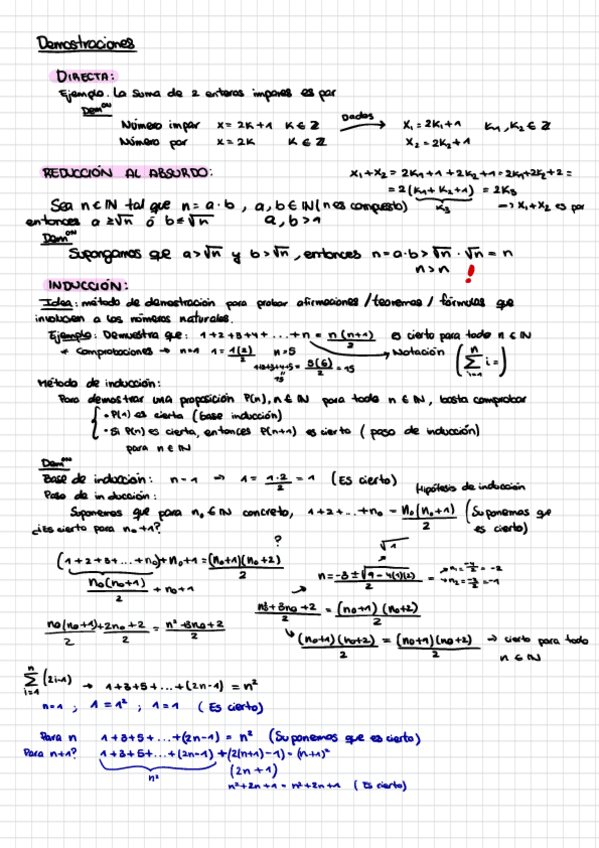 Demostraciones
DIRECTA:
Ejemplo. La suma de 2 enteros impares es par
Dem^on
Número impar x = 2k+1 k ∈ Z Dados x₁ = 2k₁+1 k₁, k₂ ∈ Z
Número par x = 2k k ∈ Z x₂ = 2k₂+1
REDUCCIÓN AL ABSURDO: x₁+x₂ = 2k₁+1+2k₂+1 = 2k₁+2k₂+2 =
= 2(k₁+k₂+1) = 2k₃
Sea n ∈ IN tal que n = a·b, a, b ∈ IN (n es compuesto) k₃ → x₁+x₂ es par
entonces a ≥ √n ó b ≤ √n a, b > 1
Dem^on
Supongamos que a > √n y b > √n, entonces n = a·b > √n · √n = n
n > n !
INDUCCIÓN:
Idea: método de demostración para probar afirmaciones / teoremas / fórmulas que
involucren a los números naturales.
Ejemplo: Demuestra que: 1+2+3+4+ ... +n = n(n+1)/2 es cierto para todo n ∈ IN
* Comprobaciones → n=1 1 = 1(2)/2 n=5 1+2+3+4+5 = 5(6)/2 = 15 Notación (∑ i=1 n i = )
15
Método de inducción:
Para demostrar una proposición P(n), n ∈ IN para todo n ∈ IN, basta comprobar
• P(1) es cierta (base inducción)
• Si P(n) es cierta, entonces P(n+1) es cierto (paso de inducción)
para n ∈ IN
Dem^on
Base de inducción: n=1 → 1 = 1·2/2 = 1 (Es cierto)
Hipótesis de inducción
Paso de inducción:
Suponemos que para n₀ ∈ IN concreto, 1+2+...+n₀ = n₀(n₀+1)/2 (Suponemos que
es cierto)
¿Es cierto para n₀+1?
? √1
(1+2+3+ ... n₀)+n₀+1 = (n₀+1)(n₀+2)/2 n = -3±√9-4(1)(2)/2 = n₁ = -4/2 = -2
n₂ = -2/2 = -1
n₀(n₀+1)/2 + n₀+1
n²+3n₀+2/2 = (n₀+1)(n₀+2)/2
n₀(n₀+1)/2 + 2n₀+2/2 = n²+3n₀+2/2
(n₀+1)(n₀+2)/2 = (n₀+1)(n₀+2)/2 → cierto para todo
n ∈ IN
∑ i=1 n (2i-1) → 1+3+5+ ... +(2n-1) = n²
n=1 ; 1 = 1² ; 1=1 (Es cierto)
Para n 1+3+5+ ... +(2n-1) = n² (Suponemos que es cierto)
Para n+1? 1+3+5+ ... +(2n-1)+(2(n+1)-1) = (n+1)²
n² (2n+1)
n²+2n+1 = n²+2n+1 (Es cierto)